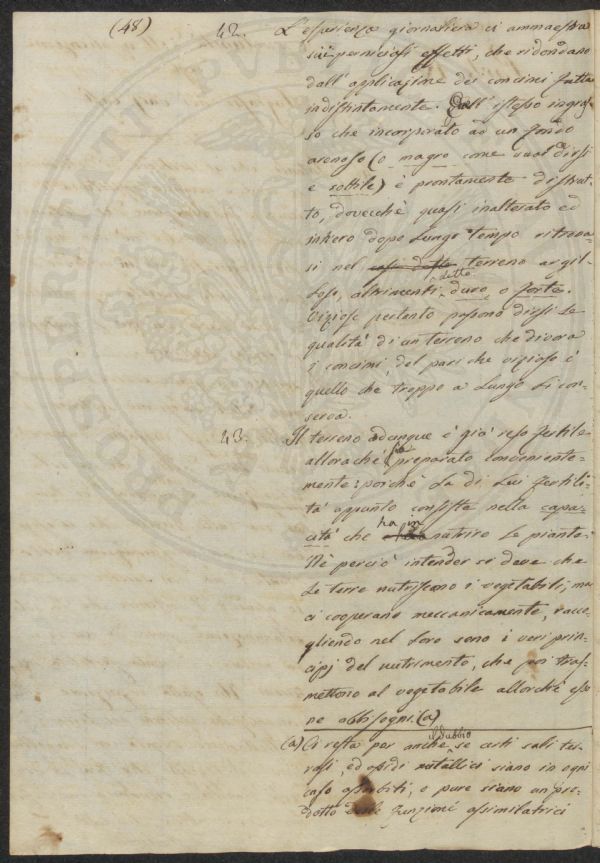 (48)
42. L'esperienza giornaliera ci ammaestra
sui perniciosi effetti, che ridondano
dall'applicazione dei concimi fatta
indistintamente. Dall'istesso ingras=
so che incorporato ad un fondo
arenoso (o magro come vuol dirsi
e sottile) è prontamente distrut=
to, dovecchè quasi inalterato ed
intiero dopo lungo tempo ritrova=
si nel così detto terreno argil=
loso, altrimenti detto duro o forte.
Viziose pertanto possono dirsi le
qualità di un terreno che divora
i concimi, del pari che vizioso è
quello che troppo a lungo li con=
serva.
43. Il terreno adunque è già reso fertile
allorachè fu preparato conveniente=
mente: poichè la di lui fertili=
tà appunto consiste nella capa=
cità che ha in nutrire le piante.
Nè perciò intender si deve che
le terre nutriscano i vegetabili, ma
ci cooperano meccanicamente, racco=
gliendo nel loro seno i veri prin=
cipj del nutrimento, che poi tras=
mettono al vegetabile allorchè esso
ne abbisogni. (a)
(a) Ci resta per anche il dubbio se certi sali ter=
rosi, ed ossidi metallici siano in ogni
caso assorbiti, o pure siano un pro=
dotto delle funzioni assimilatrici